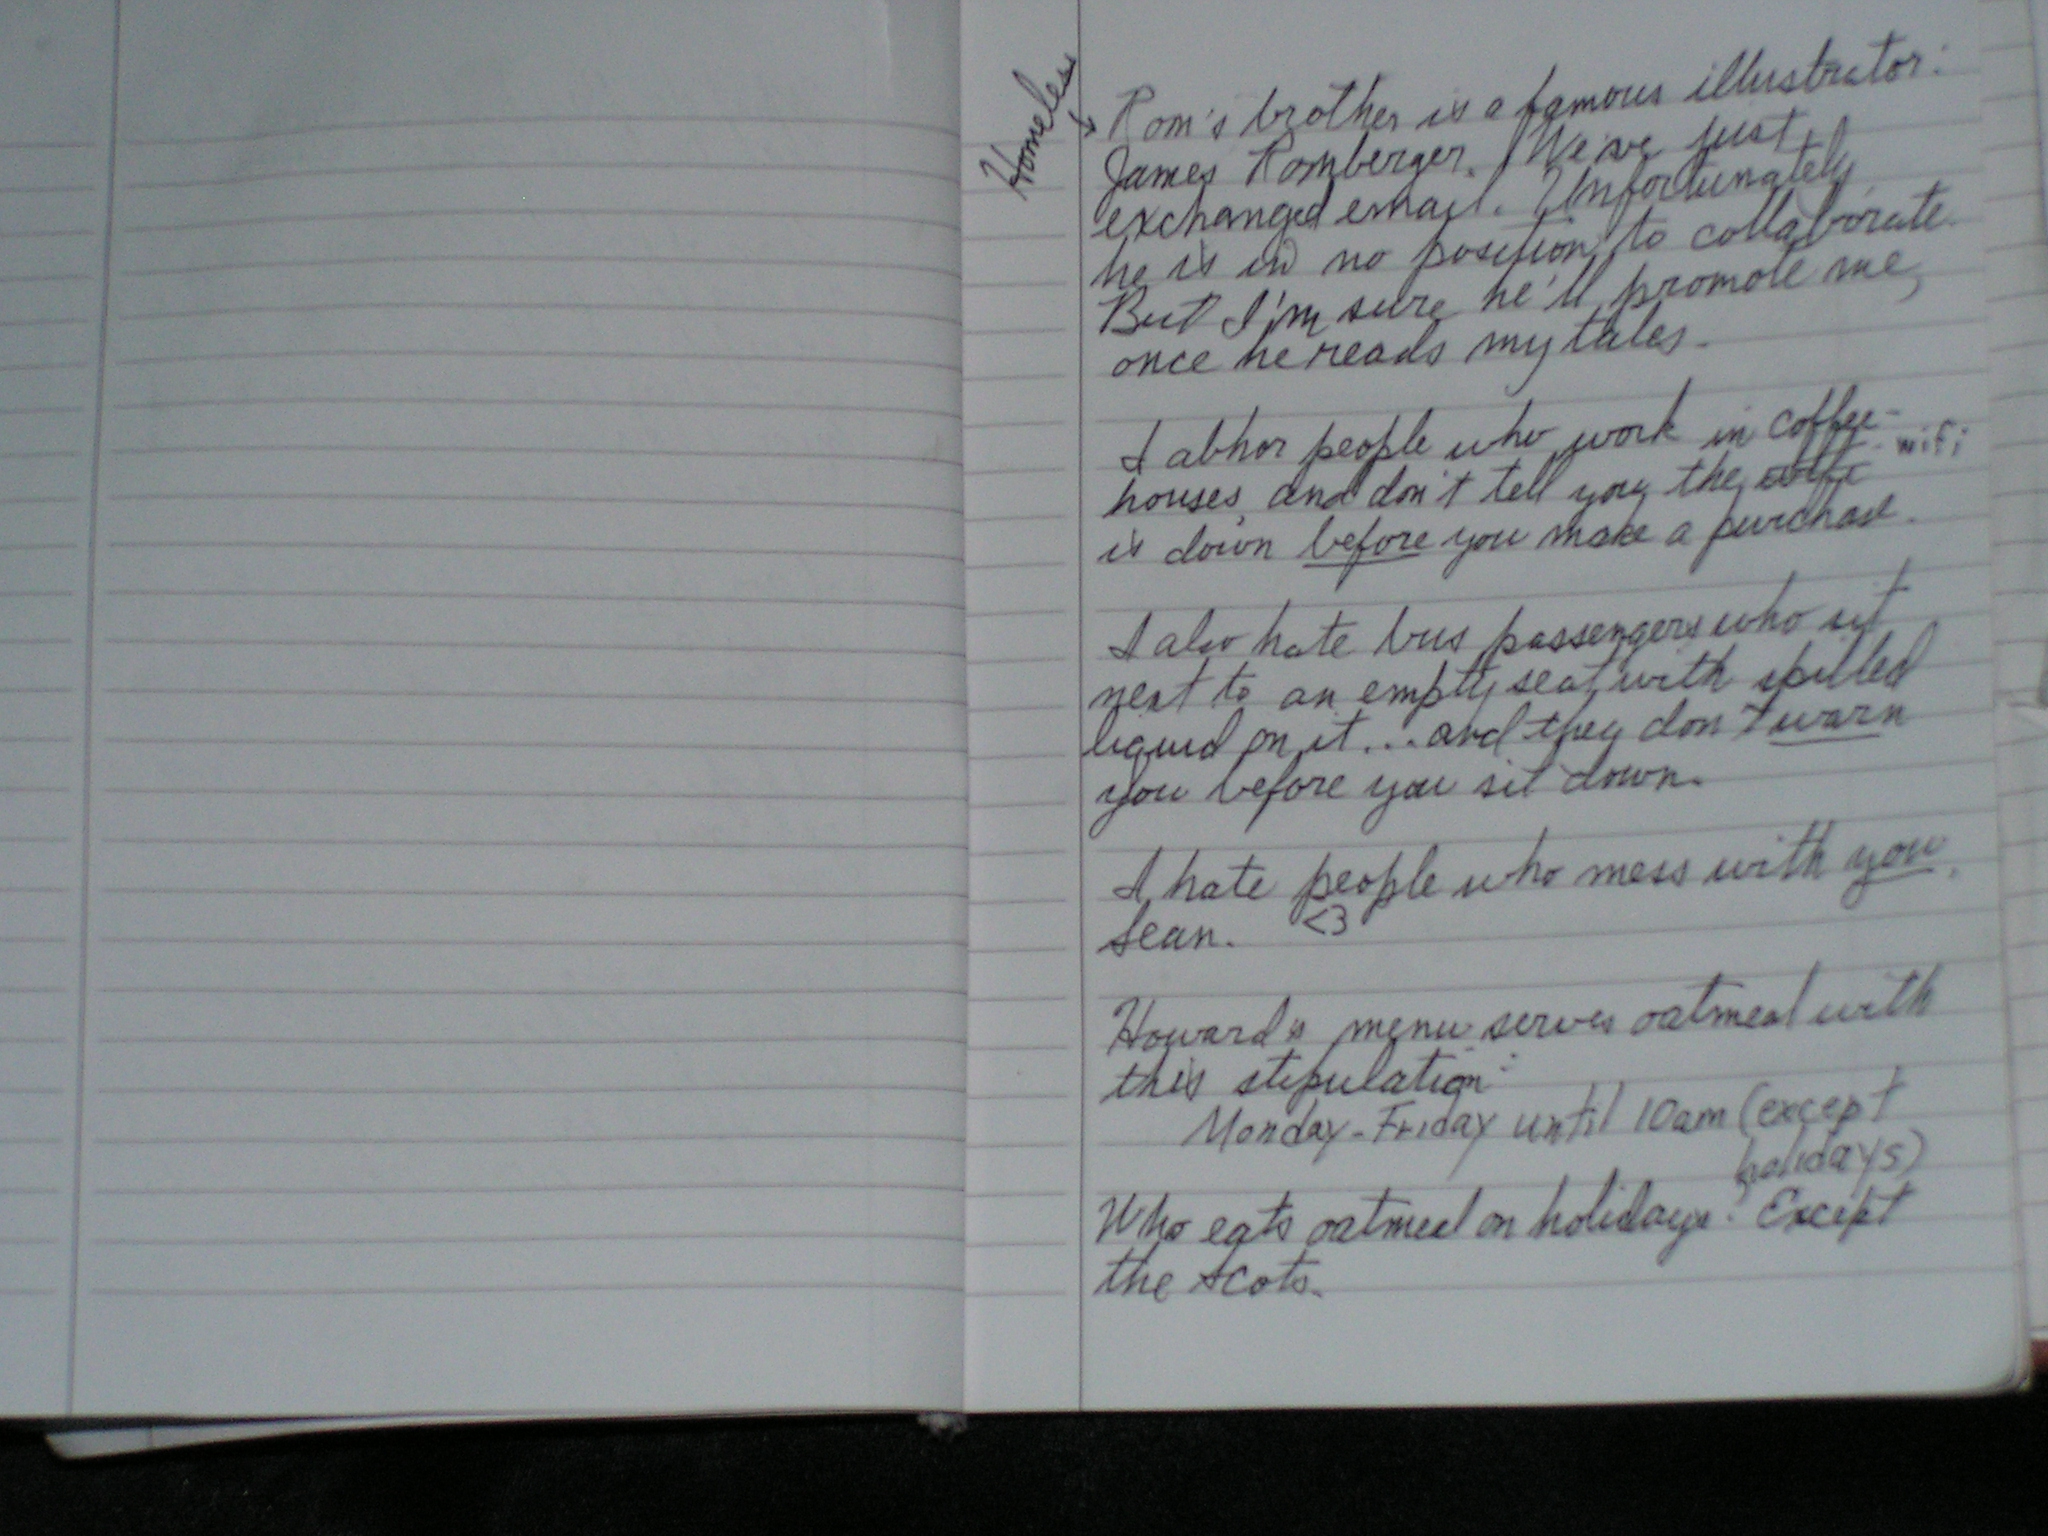 Homeless
Rom's brother is a famous illustrator:
James Romberger. We've just
exchanged email. Unfortunately
he is in no position to collaborate.
But I'm sure he'll promote me,
once he reads my tales.
I abhor people who work in coffee-
houses, and don't tell you the wifi
is down before you make a purchase.
I also hate bus passengers who sit
next to an empty seat with spilled
liquid on it... and they don't warn
you before you sit down.
I hate people who mess with you,
Sean. <3
Howard's menu serves oatmeal with
this stipulation:
Monday-Friday until 10am (except
holidays)
Who eats oatmeal on holidays? Except
the Scots.